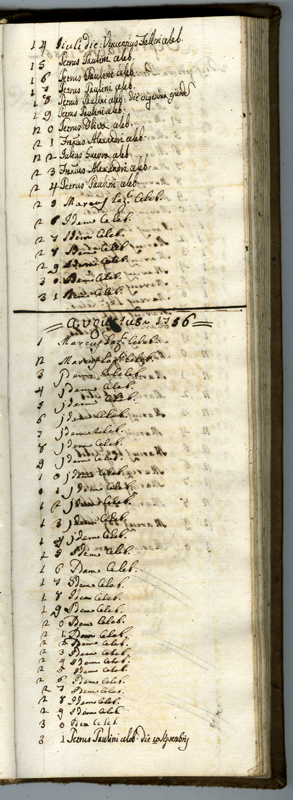 14 die: Vincentius Fallon celeb.
15 Petrus Paulini celeb.
16 Petrus Paulini celeb.
17 Petrus Paulini celeb.
18 Petrus Paulini celeb: die
19 Petrus Paulini celeb.
20 Petrus Oliva celeb.
21 Alexandri celeb.
22 Julius Guerra celeb.
23 Alexandri celeb.
24 Petrus Paulini celeb.
25 Marcus celeb.
26 Idem Celeb.
27 Idem Celeb.
28 Idem Celeb.
29 Idem Celeb.
30 Idem Celeb.
31 Idem Celeb.
= Augustus 1756 =
1 Marcus Celeb.
2 Marcus Celeb.
3 Idem Celeb.
4 Idem Celeb.
5 Idem Celeb.
6 Idem Celeb.
7 Idem Celeb.
8 Idem Celeb.
9 Idem Celeb.
10 Idem Celeb.
11 Idem Celeb.
12 Idem Celeb.
13 Idem Celeb.
14 Idem Celeb.
15 Idem Celeb.
16 Idem Celeb.
17 Idem Celeb.
18 Idem Celeb.
19 Idem Celeb.
20 Idem Celeb.
21 Idem Celeb.
22 Idem Celeb.
23 Idem Celeb.
24 Idem Celeb.
25 Idem Celeb.
26 Idem Celeb.
27 Idem Celeb.
28 Idem Celeb.
29 Idem Celeb.
30 Idem Celeb
31 Petrus Paulini celeb. die